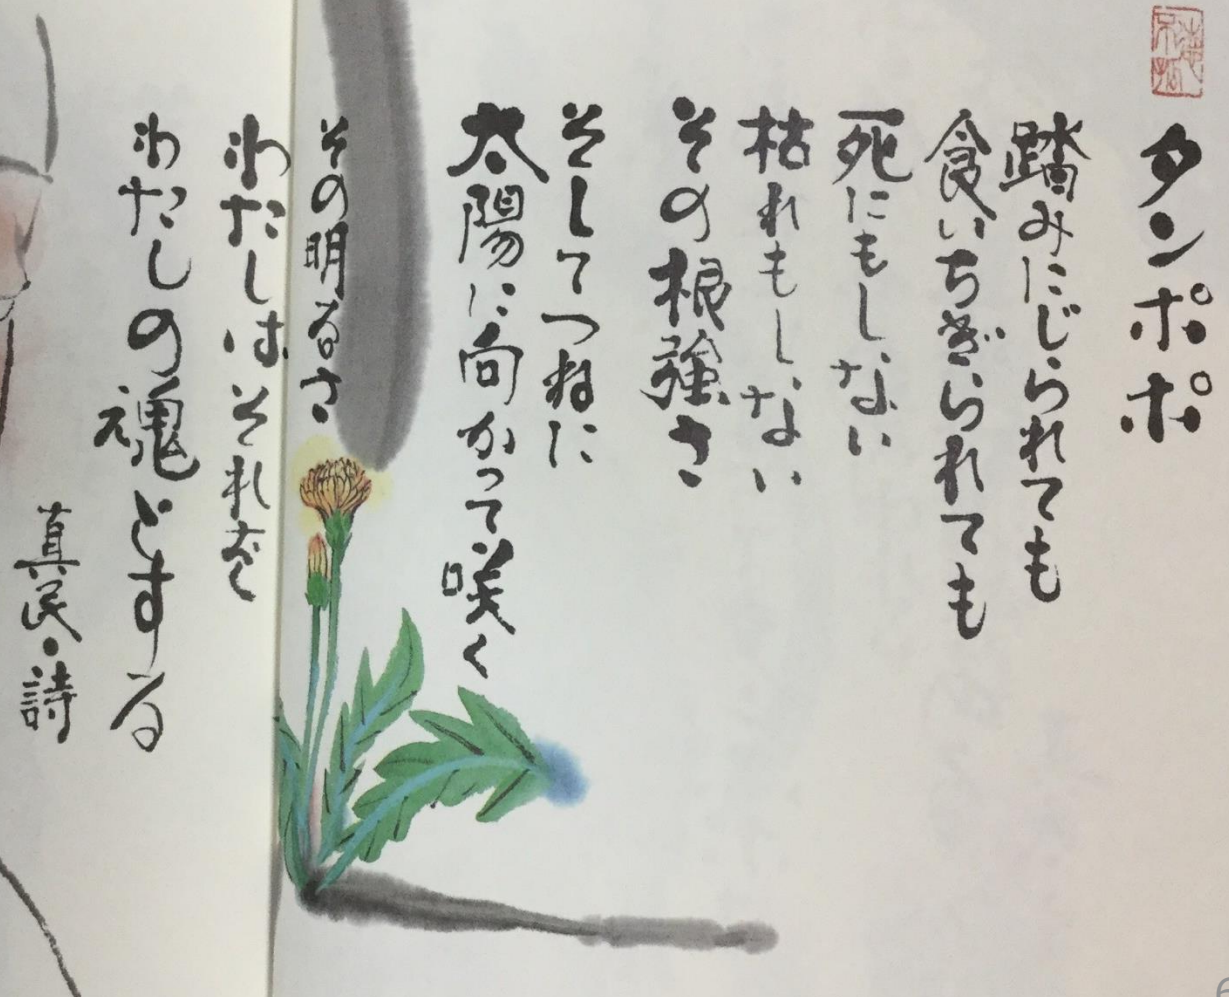 タンポポ
踏みにじられても
食いちぎられても
死にもしない
枯れもしない
その根強さ
そしてつねに
太陽に向かって咲く
その明るさ
わたしはそれを
わたしの魂とする
真民・詩